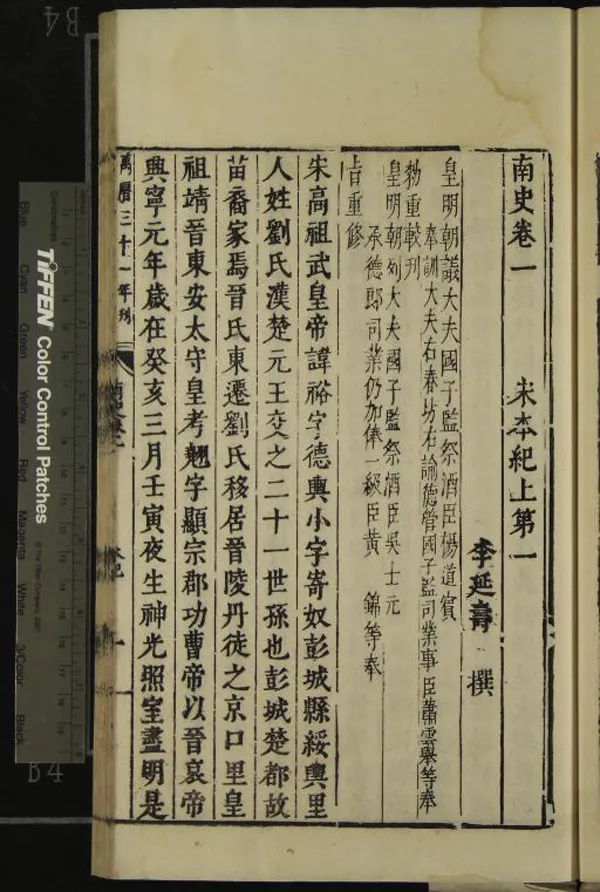 南史卷一 宋本紀上第一
李延壽 撰
皇明朝議大夫國子監祭酒臣楊道賓
奉訓大夫右春坊右諭德管國子監司業事臣蕭雲舉等奉
勅重較刊
皇明朝列大夫國子監祭酒臣吳士元
承德郎司業仍加俸一級臣黃 錦等奉
旨重修
宋高祖武皇帝諱裕字德輿小字寄奴彭城縣綏輿里
人姓劉氏漢楚元王交之二十一世孫也彭城楚都故
苗裔家焉晉氏東遷劉氏移居晉陵丹徒之京口里皇
祖靖晉東安太守皇考翹字顯宗郡功曹帝以晉哀帝
興寧元年歲在癸亥三月壬寅夜生神光照室盡明是
萬曆三十一年刊
TIFFEN Color Control Patches
Blue Cyan Green Yellow Red Magenta White 3/Color Black
B4
B4